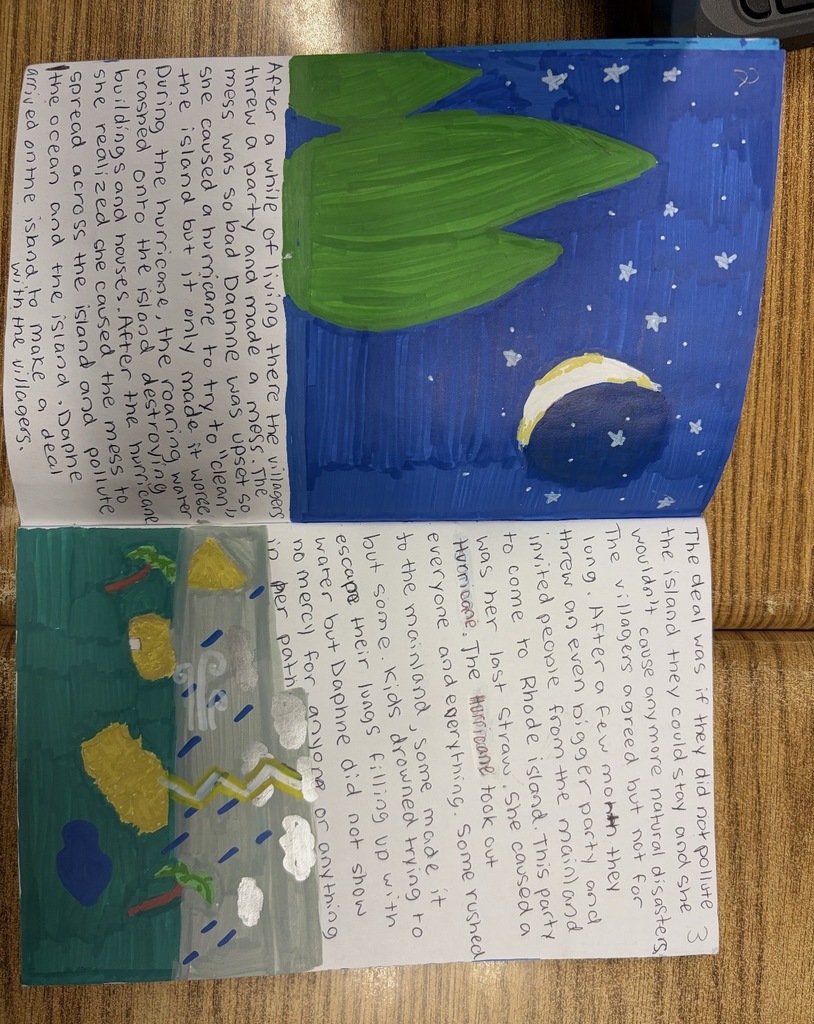 2
After a while of living there the villagers
threw a party and made a mess. The
mess was so bad Daphne was upset so
she caused a hurricane to try to "clean"
the island but it only made it worse.
During the hurricane, the roaring water
crashed onto the island destroying
buildings and houses. After the hurricane
she realized she caused the mess to
spread across the island and pollute
the ocean and the island. Daphne
arrived on the island to make a deal
with the villagers.
3
The deal was if they did not pollute
the island they could stay and she
wouldn't cause anymore natural disasters
The villagers agreed but not for
long. After a few month they
threw an even bigger party and
invited people from the mainland
to come to Rhode island. This party
was her last straw. She caused a
Hurricane. The Hurricane took out
everyone and everything. Some rushed
to the mainland, some made it
but some. Kids drowned trying to
escape their lungs filling up with
water but Daphne did not show
no mercy for anyone or anything
in her path